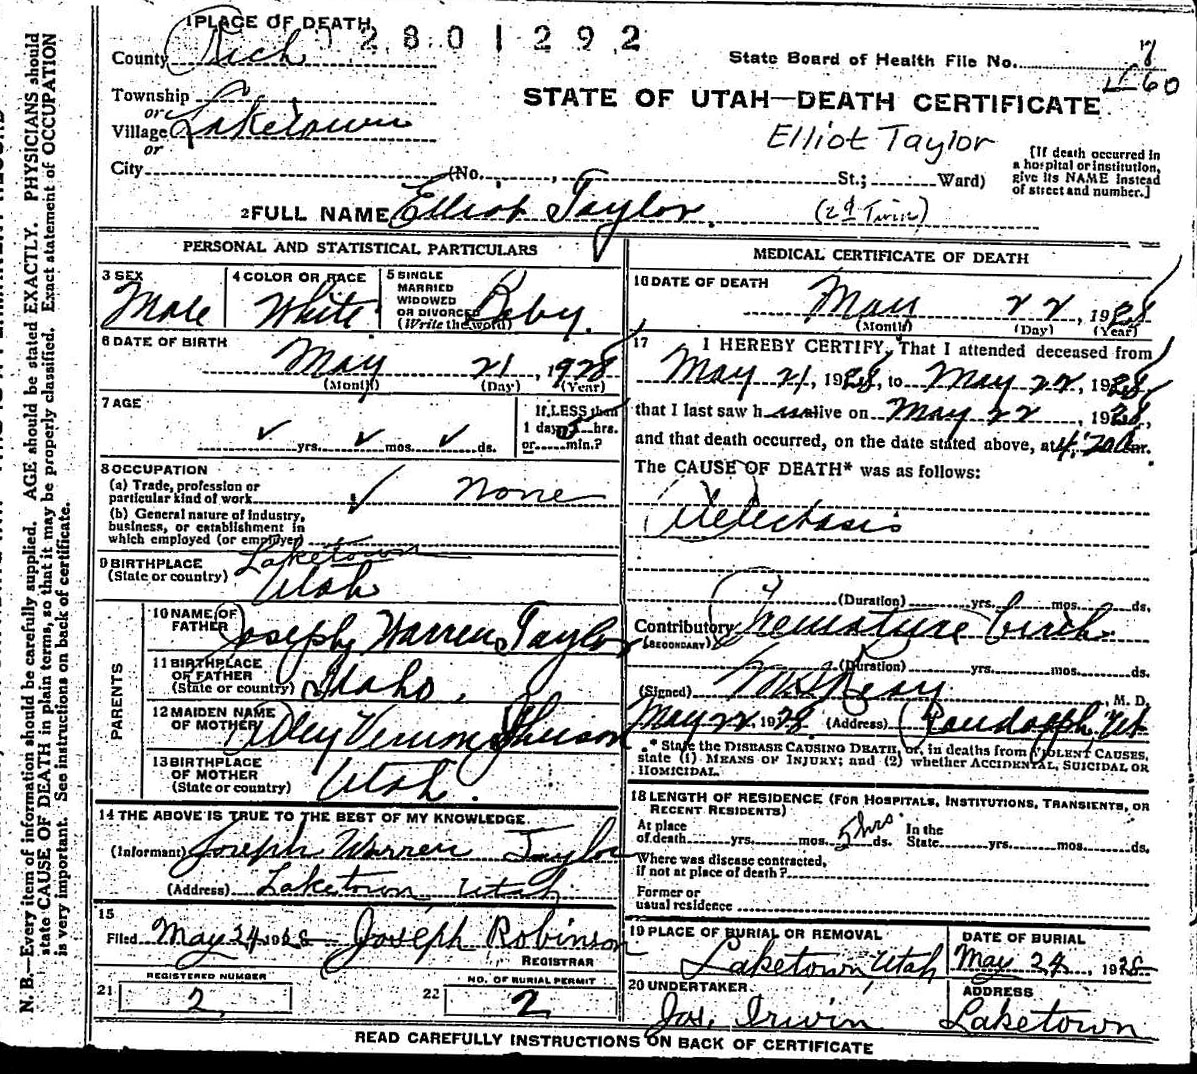 1 PLACE OF DEATH
02801292
County Rich
State Board of Health File No. 7
60
Township
or
Village Laketown
or
City (No. , St.; Ward)
STATE OF UTAH—DEATH CERTIFICATE
Elliot Taylor
[If death occurred in
a hospital or institution,
give its NAME instead
of street and number.]
2 FULL NAME Elliot Taylor. (2d Twin)
PERSONAL AND STATISTICAL PARTICULARS
3 SEX
Male
4 COLOR OR RACE
White
5 SINGLE
MARRIED
WIDOWED
OR DIVORCED
(Write the word)
Baby.
6 DATE OF BIRTH
May 21, 1928
(Month) (Day) (Year)
7 AGE
yrs. mos. ds.
If LESS than
1 day 5 hrs.
or min.?
8 OCCUPATION
(a) Trade, profession or
particular kind of work none
(b) General nature of industry,
business, or establishment in
which employed (or employer)
9 BIRTHPLACE
(State or country)
Laketown
Utah
PARENTS
10 NAME OF
FATHER Joseph Warren Taylor
11 BIRTHPLACE
OF FATHER
(State or country) Idaho.
12 MAIDEN NAME
OF MOTHER
13 BIRTHPLACE
OF MOTHER
(State or country) Utah.
14 THE ABOVE IS TRUE TO THE BEST OF MY KNOWLEDGE.
(Informant) Joseph Warren Taylor
(Address) Laketown Utah
15
Filed May 24 1928 Joseph Robinson
REGISTRAR
REGISTERED NUMBER
21 2
NO. OF BURIAL PERMIT
22 2
MEDICAL CERTIFICATE OF DEATH
16 DATE OF DEATH
May 22, 1928
(Month) (Day) (Year)
17 I HEREBY CERTIFY, That I attended deceased from
May 21, 1928, to May 22, 1928,
that I last saw h alive on May 22, 1928,
and that death occurred, on the date stated above, at 4:20 a m.
The CAUSE OF DEATH* was as follows:
Atelectasis
(Duration) yrs. mos. ds.
Contributory Premature birth
(SECONDARY)
(Duration) yrs. mos. ds.
(Signed) M. D.
May 22 1928 (Address) Randolph Ut
* State the DISEASE CAUSING DEATH, or, in deaths from VIOLENT CAUSES,
state (1) MEANS OF INJURY; and (2) whether ACCIDENTAL, SUICIDAL OR
HOMICIDAL.
18 LENGTH OF RESIDENCE (FOR HOSPITALS, INSTITUTIONS, TRANSIENTS, OR
RECENT RESIDENTS)
At place
of death yrs. mos. 5 hrs. ds. In the
State yrs. mos. ds.
Where was disease contracted,
if not at place of death?
Former or
usual residence
19 PLACE OF BURIAL OR REMOVAL
Laketown, Utah
DATE OF BURIAL
May 24, 1928
20 UNDERTAKER
Jos. Irwin
ADDRESS
Laketown
READ CAREFULLY INSTRUCTIONS ON BACK OF CERTIFICATE
N. B.—Every item of information should be carefully supplied. AGE should be stated EXACTLY. PHYSICIANS should
state CAUSE OF DEATH in plain terms, so that it may be properly classified. Exact statement of OCCUPATION
is very important. See instructions on back of certificate.